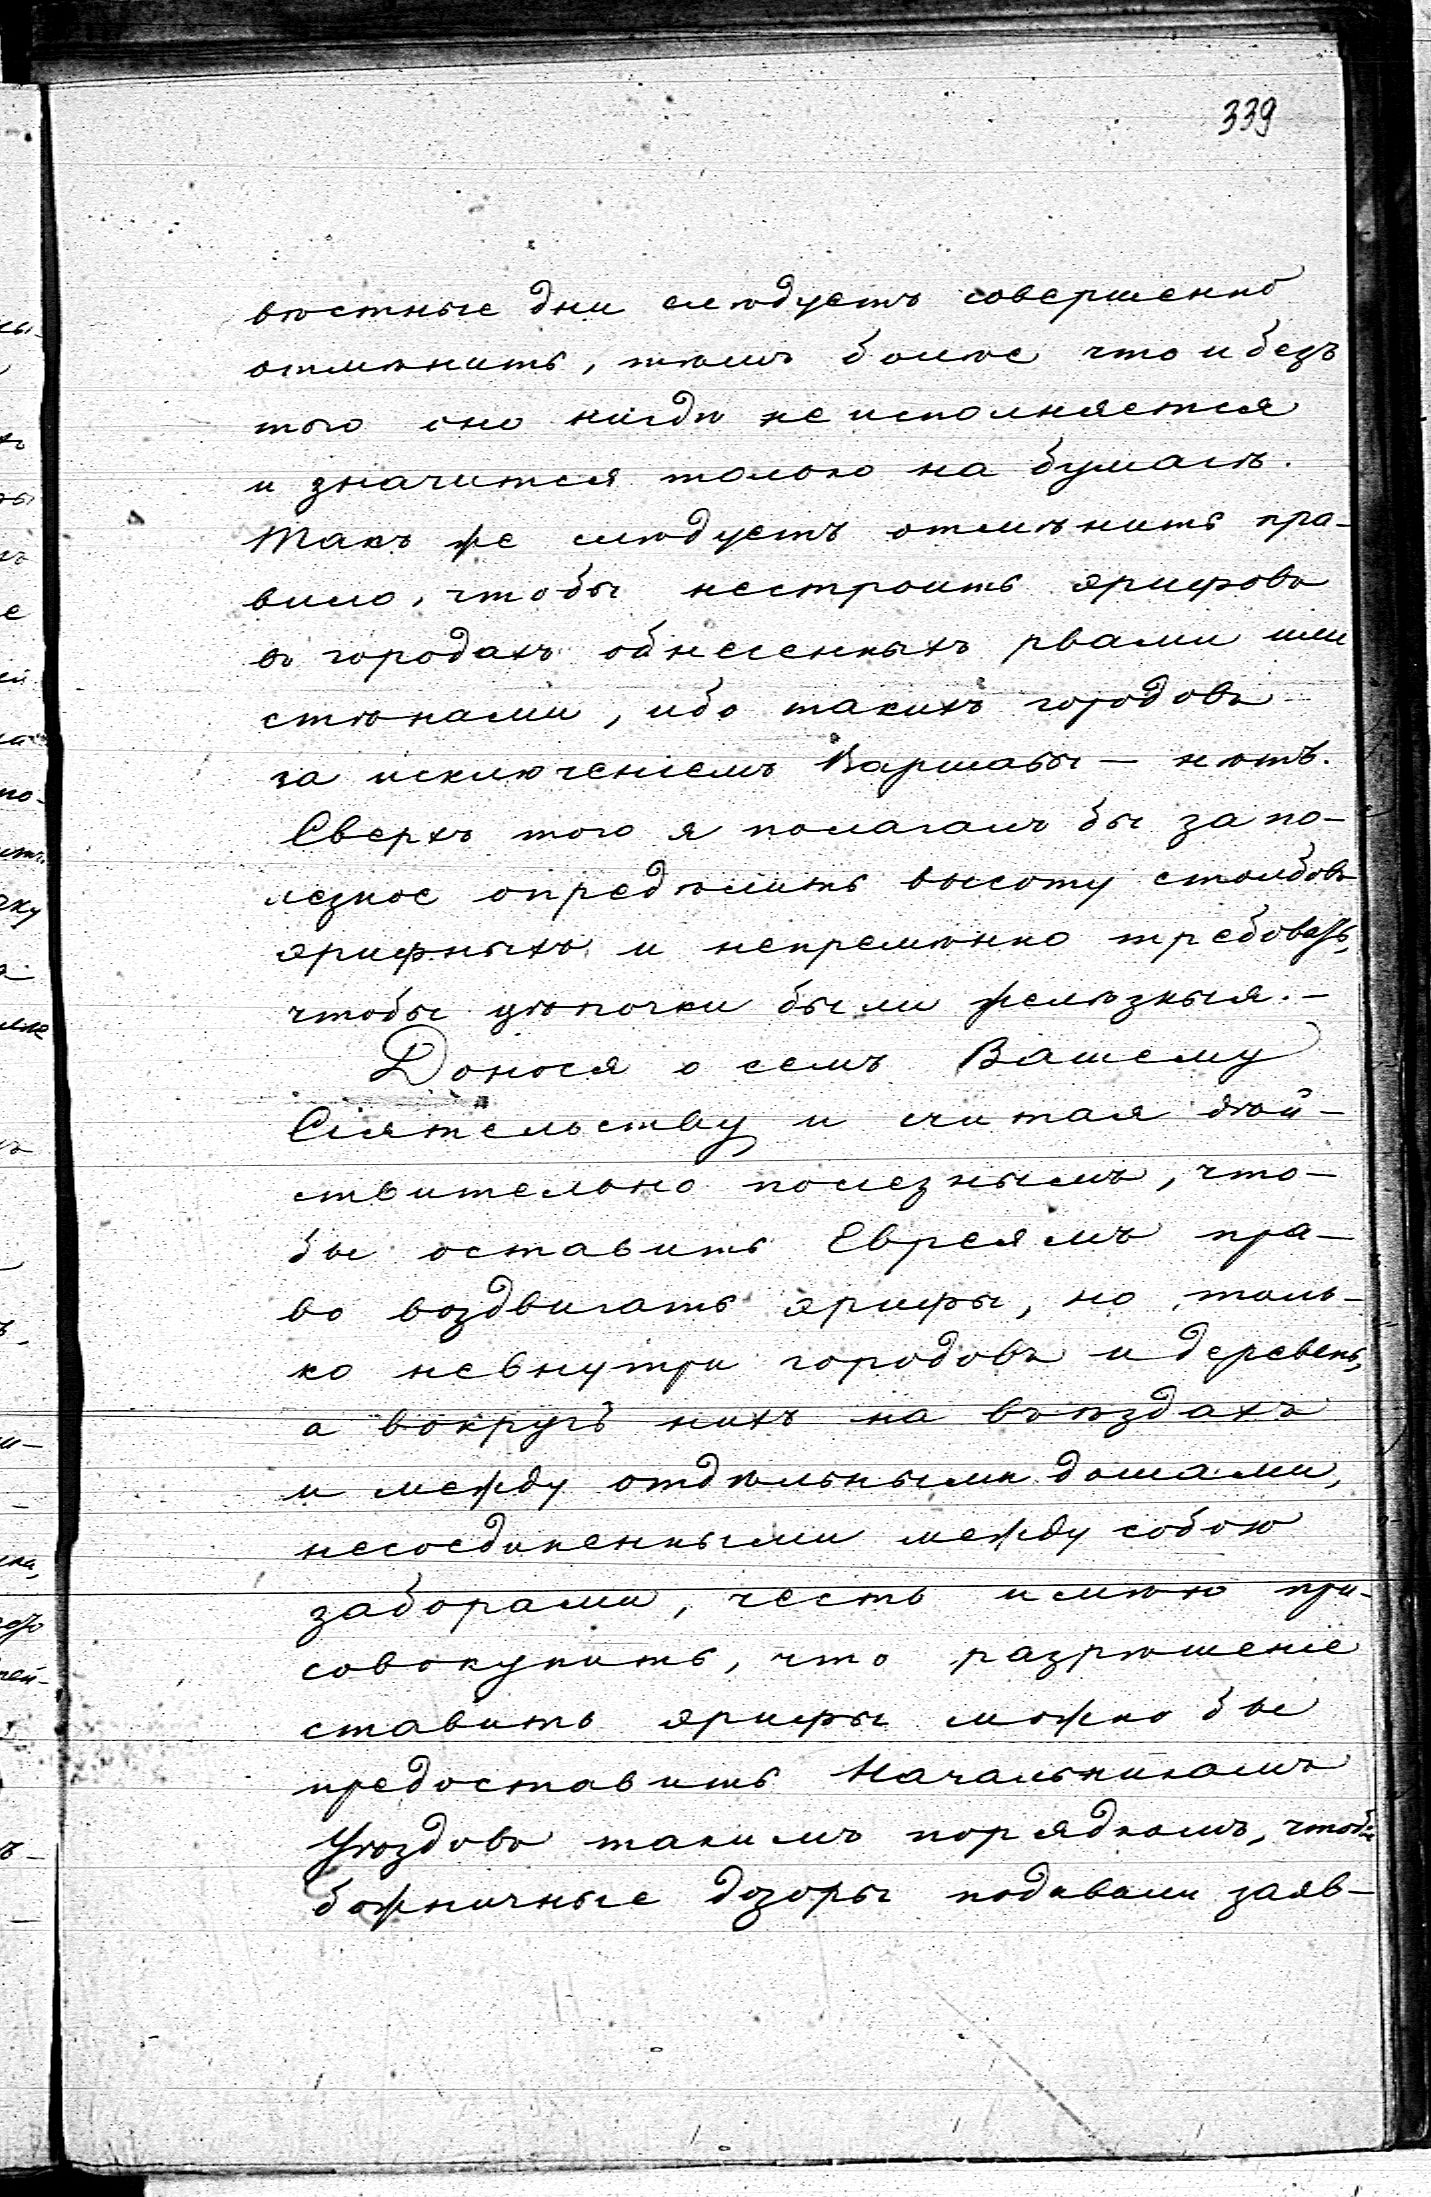 339
вѣстные дни слѣдуетъ совершенно
отмѣнить, тѣмъ болѣе что и безъ
того оно нигдѣ не исполняется
и значится только на бумагѣ.
Такъ же слѣдуетъ отмѣнить пра-
вило, чтобы нестроить эрифовъ
въ городахъ обнесенныхъ рвами или
стѣнами, ибо такихъ городовъ
за исключеніемъ Варшавы — нѣтъ.
Сверхъ того я полагалъ бы за по-
лезное опредѣлить высоту столбовъ
эрифныхъ и непремѣнно требовать,
чтобы цѣпочки были желѣзныя. —
Донося о семъ Вашему
Сіятельству и считая дѣй-
ствительно полезнымъ, что-
бы оставить Евреямъ пра-
во воздвигать эрифы, но толь-
ко невнутри городовъ и деревень,
а вокругъ нихъ на въѣздахъ
и между отдѣльными домами,
несоединенными между собою
заборами, честь имѣю при-
совокупить, что разрѣшеніе
ставить эрифы можно бы
предоставить Начальникамъ
Уѣздовъ такимъ порядкомъ, чтобы
божничные дозоры подавали заяв-